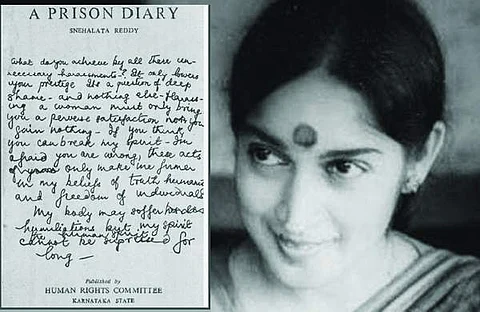 A PRISON DIARY
SNEHALATA REDDY
What do you achieve by all these un-
necessary harassments? It only lowers
your prestige. It's a question of deep
shame - and nothing else - Harass-
ing a woman must only bring
you a perverse satisfaction
gain nothing - If you think
you can break my spirit - I'm
afraid you are wrong, these acts
of only make me firmer
in my beliefs of truth
and freedom of individuals
My body may suffer
humiliations but my spirit
human spirit
cannot be for
long -
Published by
HUMAN RIGHTS COMMITTEE
KARNATAKA STATE